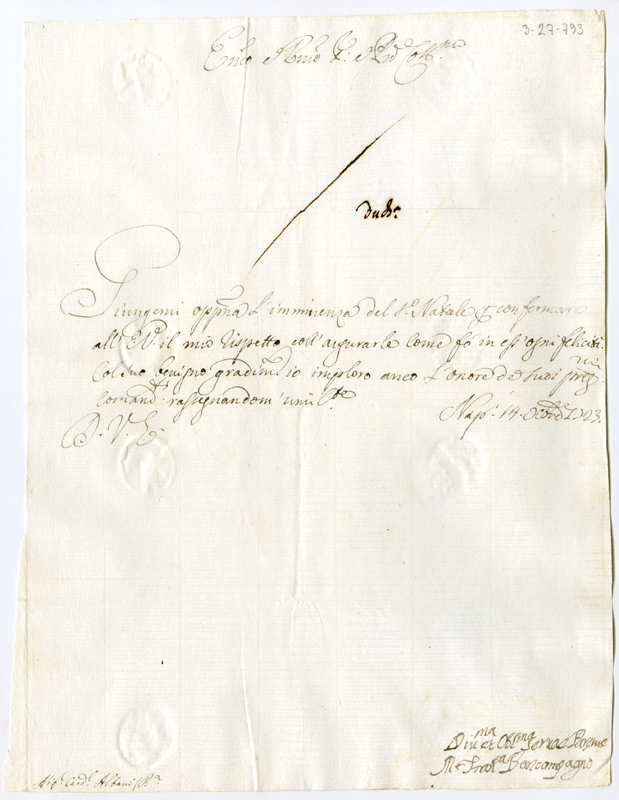 3-27-793
Emo Rmo
duch.a
Giungemi oppna l'imminenza del S. Natale p confermare
all' E.V. il mio rispetto coll' augurarle come fò in essi ogni felicità
Col suo benigno gradim.to io imploro anco l'onore de suoi preg.mi
Comand.i rassegnandomi umil.te
Nap. 14. Xbre 1723.
D. V. E.
Div.ma et Obl.ma Serva
M.e Boncompagno
Card. Albani